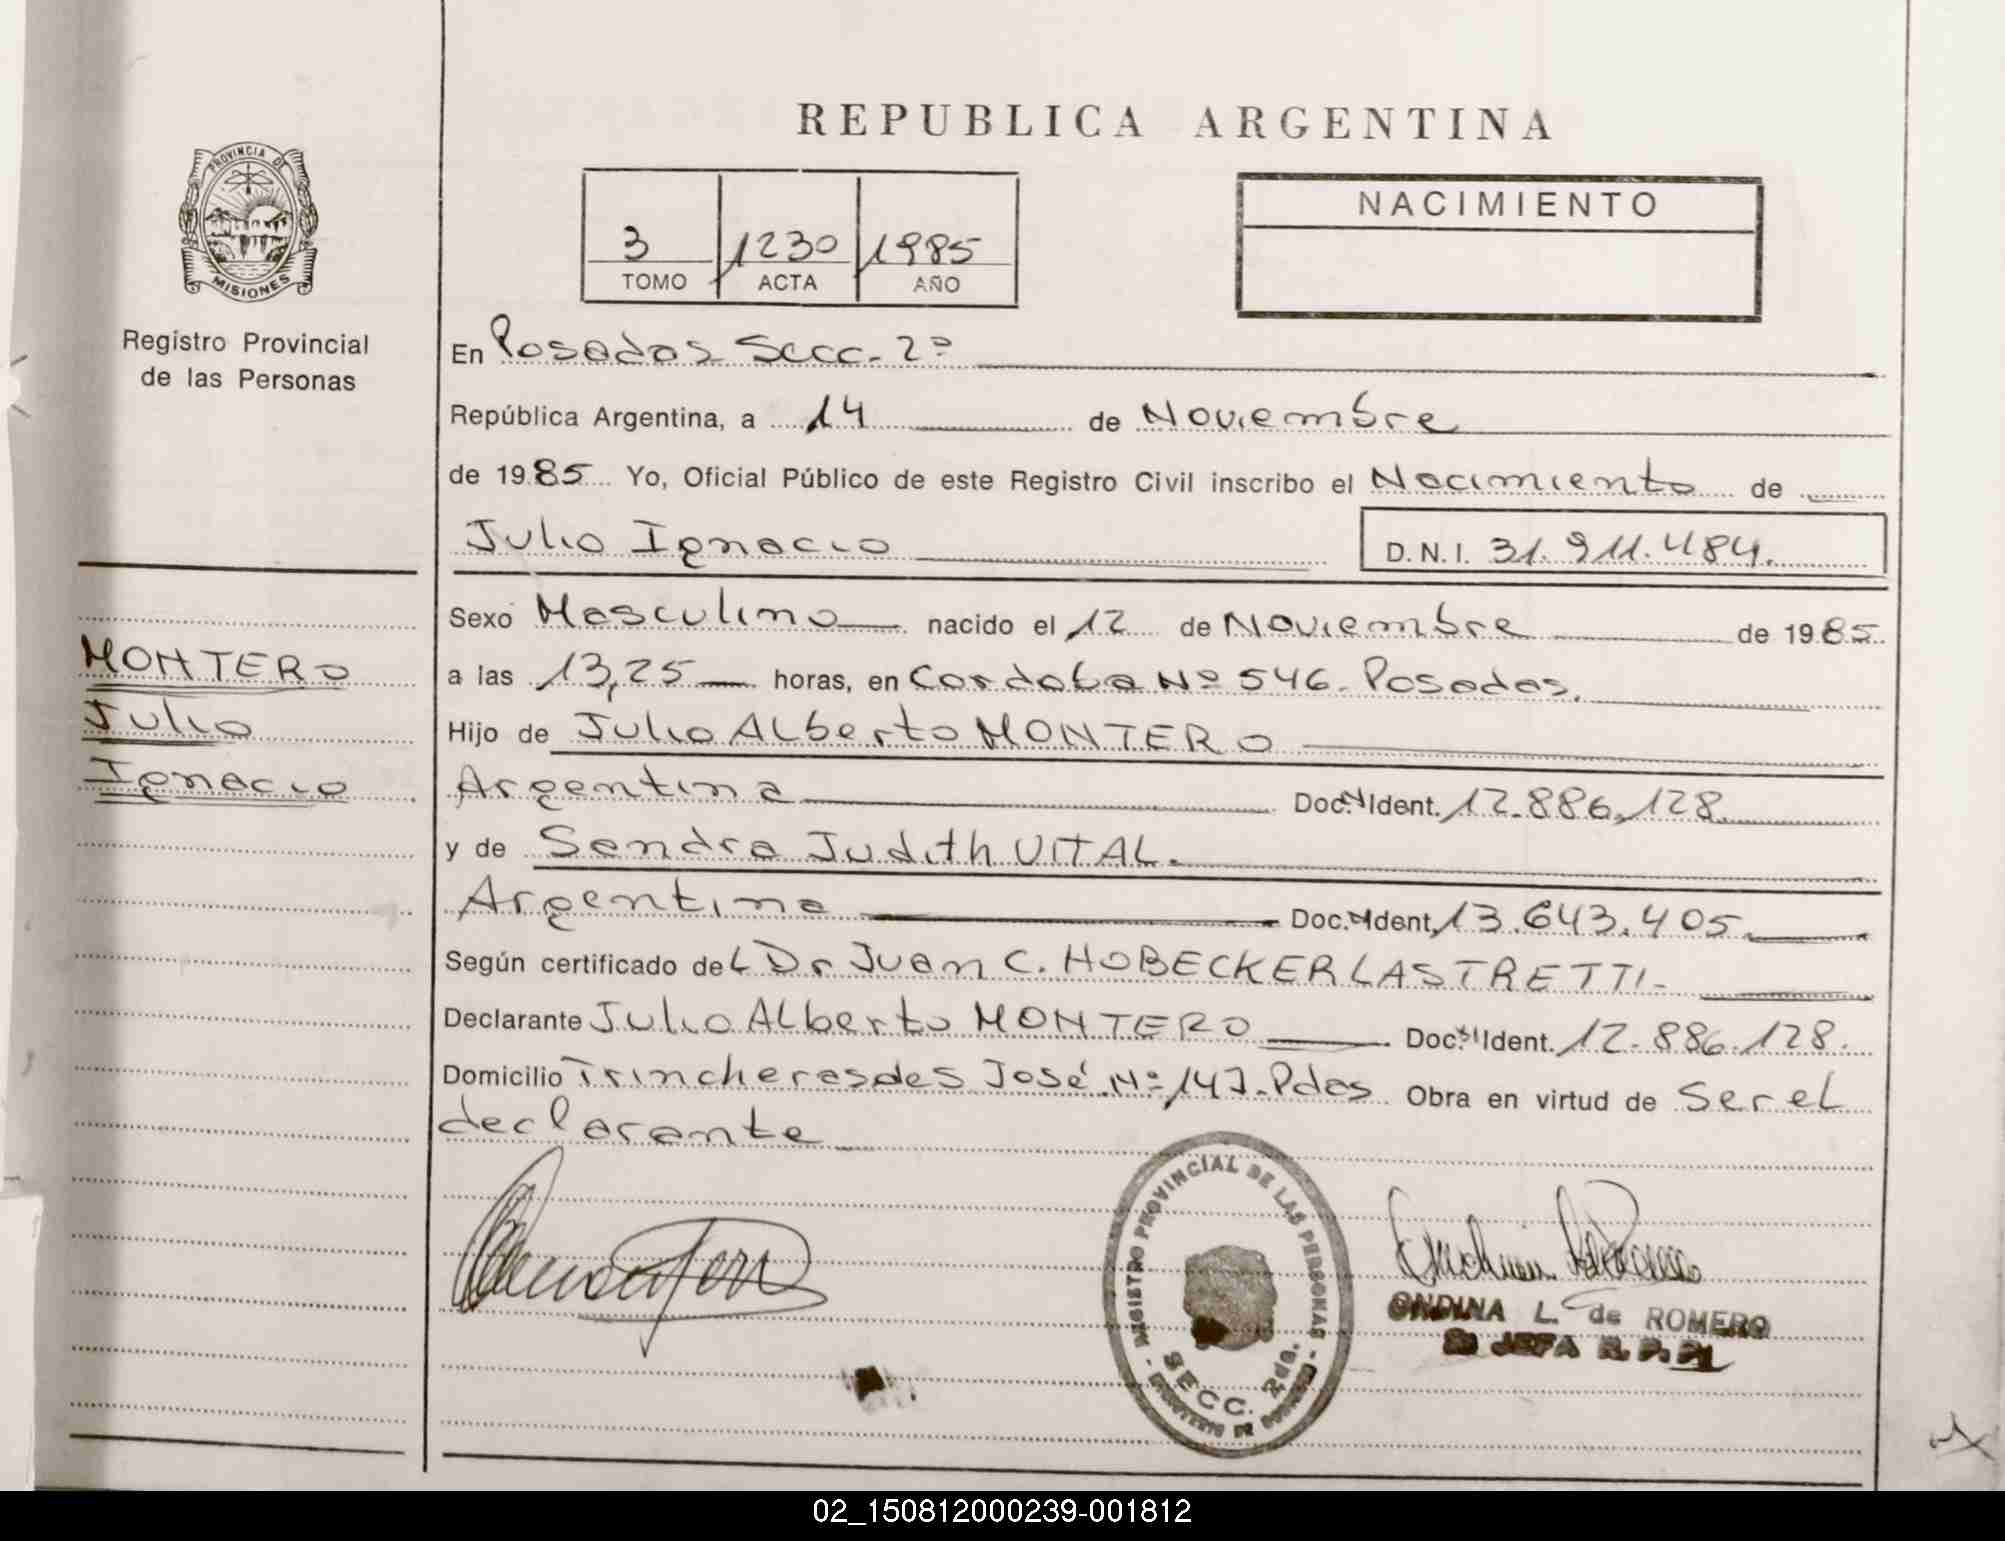 REPUBLICA ARGENTINA
PROVINCIA DE
MISIONES
Registro Provincial
de las Personas
3 1230 1985
TOMO ACTA AÑO
NACIMIENTO
En Posadas Secc. 2ª
República Argentina, a 14 de Noviembre
de 1985 Yo, Oficial Público de este Registro Civil inscribo el Nacimiento de
Julio Ignacio D.N.I. 31.911.484.
MONTERO
Julio
Ignacio
Sexo Masculino nacido el 12 de Noviembre de 1985
a las 13,25 horas, en Cordoba Nº 546. Posadas.
Hijo de Julio Alberto MONTERO
Argentina Doc. N Ident. 12.886.128
y de Sandra Judith VITAL.
Argentina Doc. N Ident. 13.643.405.
Según certificado del Dr Juan C. HOBECKER LASTRETTI-
Declarante Julio Alberto MONTERO Doc. N Ident. 12.886.128.
Domicilio Trincherasdes José Nº 147. Pdas Obra en virtud de Ser el
declarante
REGISTRO PROVINCIAL DE LAS PERSONAS
SECC. 2da.
ONDINA L. de ROMERO
JEFA R. P. P.
02_150812000239-001812